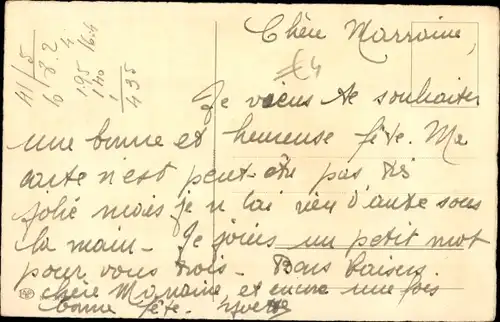 Chère Marraine,
£4
Je viens te souhaiter
une bonne et heureuse fête. Ma
carte n'est peut-être pas très
jolie mais je n'ai rien d'autre sous
la main - Je joins un petit mot
pour vous trois - Bons baisers
chère Marraine, et encore une fois
bonne fête. Yvette
41/5
6 8.2
4
195 16.4
140
1
435